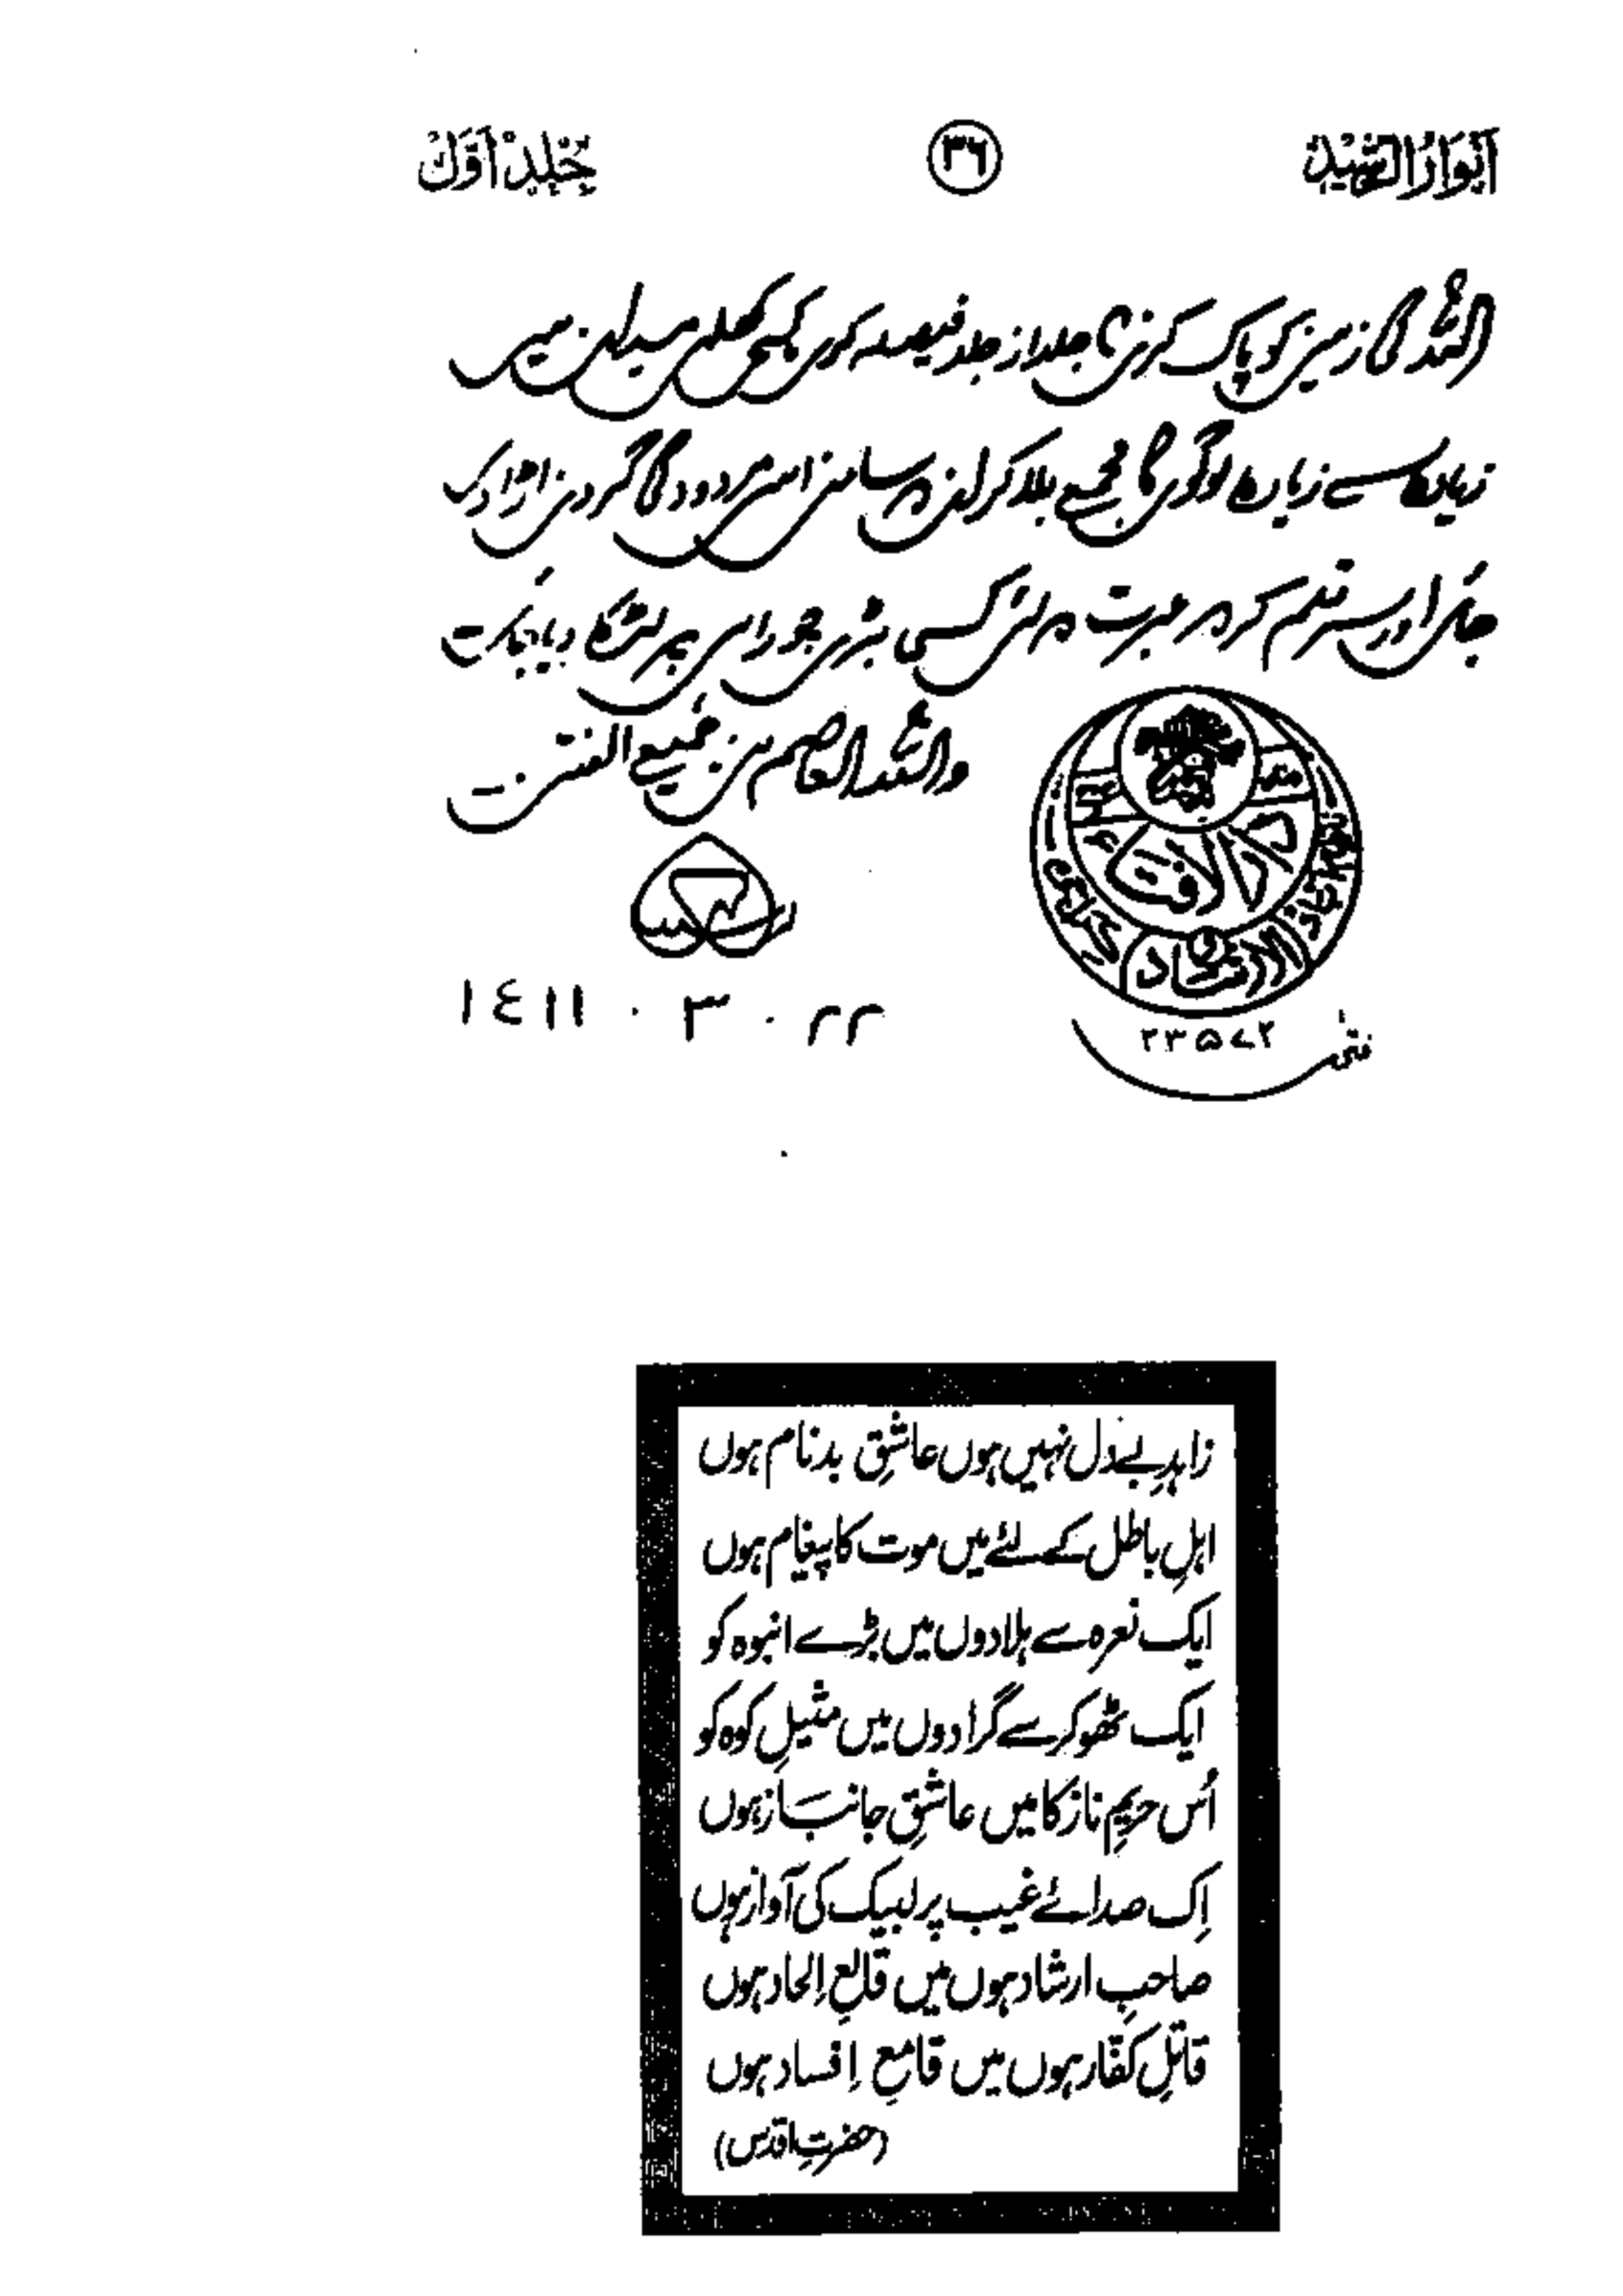 اَنْوَارُالرَّشِیْد ۳۶ جِلْدِ اَوَّلْ
اللہ کی زمین کو پاک کرنے کا جلد از جلد فیصلہ کریں کسی کھلے میدان میں
زیادہ سے زیادہ لوگوں کا مجمع بلا کر ان کے سامنے اس مردود کی گردن اڑا دی
جائے اور سر قلم کر کے عبرت کے لئے کسی پر لٹکا دیا جائے
واللہ العاصم من جمیع الفتن
رشید
۲۲ . ۳ . ١٤١١
دار الافتاء
والارشاد
کراچی
۲۳۵۷۲
زاہدِ بے دل نہیں ہوں عاشقِ بدنام ہوں
اہلِ باطل کے لئے میں موت کا پیغام ہوں
ایک نعرہ سے ہلادوں میں بڑے انبوہ کو
ایک ٹھوکر سے گرادوں میں مثیلِ کوہ کو
اُس حریمِ ناز کا میں عاشقِ جانباز ہوں
اِک صدائے غیب پر لبیک کی آواز ہوں
صاحبِ ارشاد ہوں میں قالعِ اِلحاد ہوں
قاتلِ کفّار ہوں میں قامعِ اِفساد ہوں
(حضرتِ اقدس)